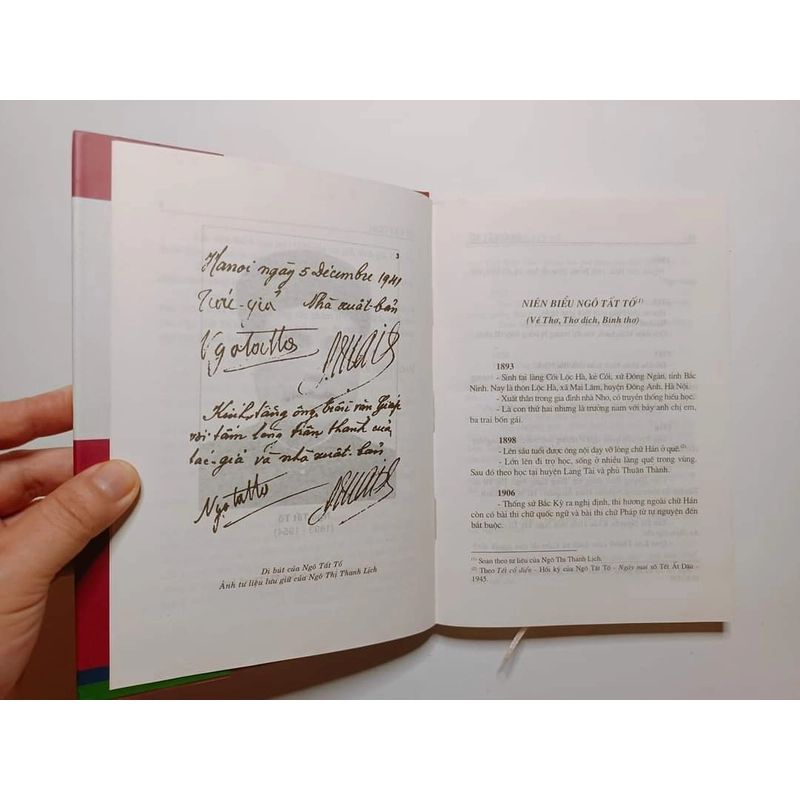 3
Hanoi ngày 5 Décembre 1941
Tác-giả Nhà xuất-bản
Ngotatto
Kính tặng ông Trần văn Giáp
với tấm lòng thân thanh của
tác-giả và nhà xuất bản
Ngotatto
Di bút của Ngô Tất Tố
Ảnh tư liệu lưu giữ của Ngô Thị Thanh Lịch
NIÊN BIỂU NGÔ TẤT TỐ(1)
(Về Thơ, Thơ dịch, Bình thơ)
1893
- Sinh tại làng Cói Lộc Hà, kẻ Cói, xứ Đông Ngàn, tỉnh Bắc
Ninh. Nay là thôn Lộc Hà, xã Mai Lâm, huyện Đông Anh, Hà Nội.
- Xuất thân trong gia đình nhà Nho, có truyền thống hiếu học.
- Là con thứ hai nhưng là trưởng nam với bảy anh chị em,
ba trai bốn gái.
1898
- Lên sáu tuổi được ông nội dạy vỡ lòng chữ Hán ở quê.(2)
- Lớn lên đi trọ học, sống ở nhiều làng quê trong vùng.
Sau đó theo học tại huyện Lang Tài và phủ Thuận Thành.
1906
- Thống sứ Bắc Kỳ ra nghị định, thi hương ngoài chữ Hán
còn có bài thi chữ quốc ngữ và bài thi chữ Pháp từ tự nguyện đến
bắt buộc.
(1) Soạn theo tư liệu của Ngô Thị Thanh Lịch.
(2) Theo Tết cổ điển - Hồi ký của Ngô Tất Tố - Ngày mai số Tết Ất Dậu
- 1945.